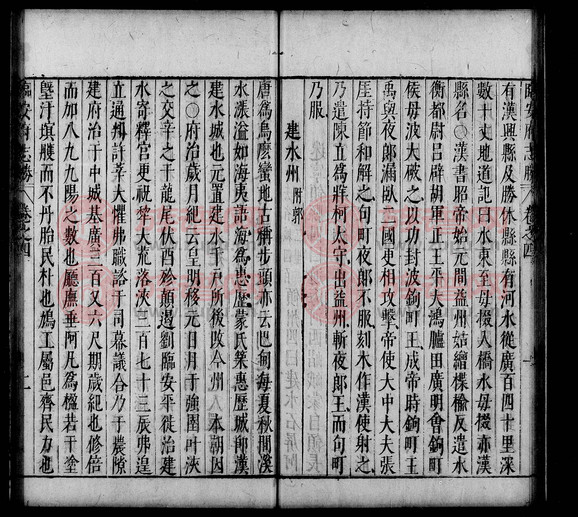 臨安府志勝 卷之四
有漢興縣及勝休縣縣有河水從廣百四十里深
數十丈地道記曰水東至毋掇入橋水毋掇亦漢
縣名○漢書昭帝始元間益州姑繒楪榆反遣水
衡都尉呂辟胡軍正王平大鴻臚田廣明會鉤町
侯毋波大破之以功封波鉤町王成帝時鉤町王
禹與夜郎漏臥三國更相攻擊帝使大中大夫張
匡持節和解之句町夜郎不服刻木作漢使射之
乃遣陳立為牂柯太守出益州斬夜郎王而句町
乃服
建水州 附郭
唐為烏麽蠻地古稱步頭亦云巴甸每夏秋間溪
水漲溢如海夷語海為惠歷蒙氏築惠歷城即漢
建水城也元置建水千戶所後改今州人本朝因
之○府治歲月紀云皇明移元日月于強圉叶洽
之交辛之千龍尾伏酉殄顛過劉臨安平徙治建
水寄釋宮更祝犂大荒落浹三百七十三辰弗遑
立通判許莘大懼弗職諮于司幕議合乃于農隙
建府治于中城基廣三百又六尺期歲紀也修倍
而加八九九陽之數也廳廡垂阿凡為楹若干塗
墍汙墁艧而不丹胎民朴也鳩工屬邑齊民力也
臨安府志勝 卷之四